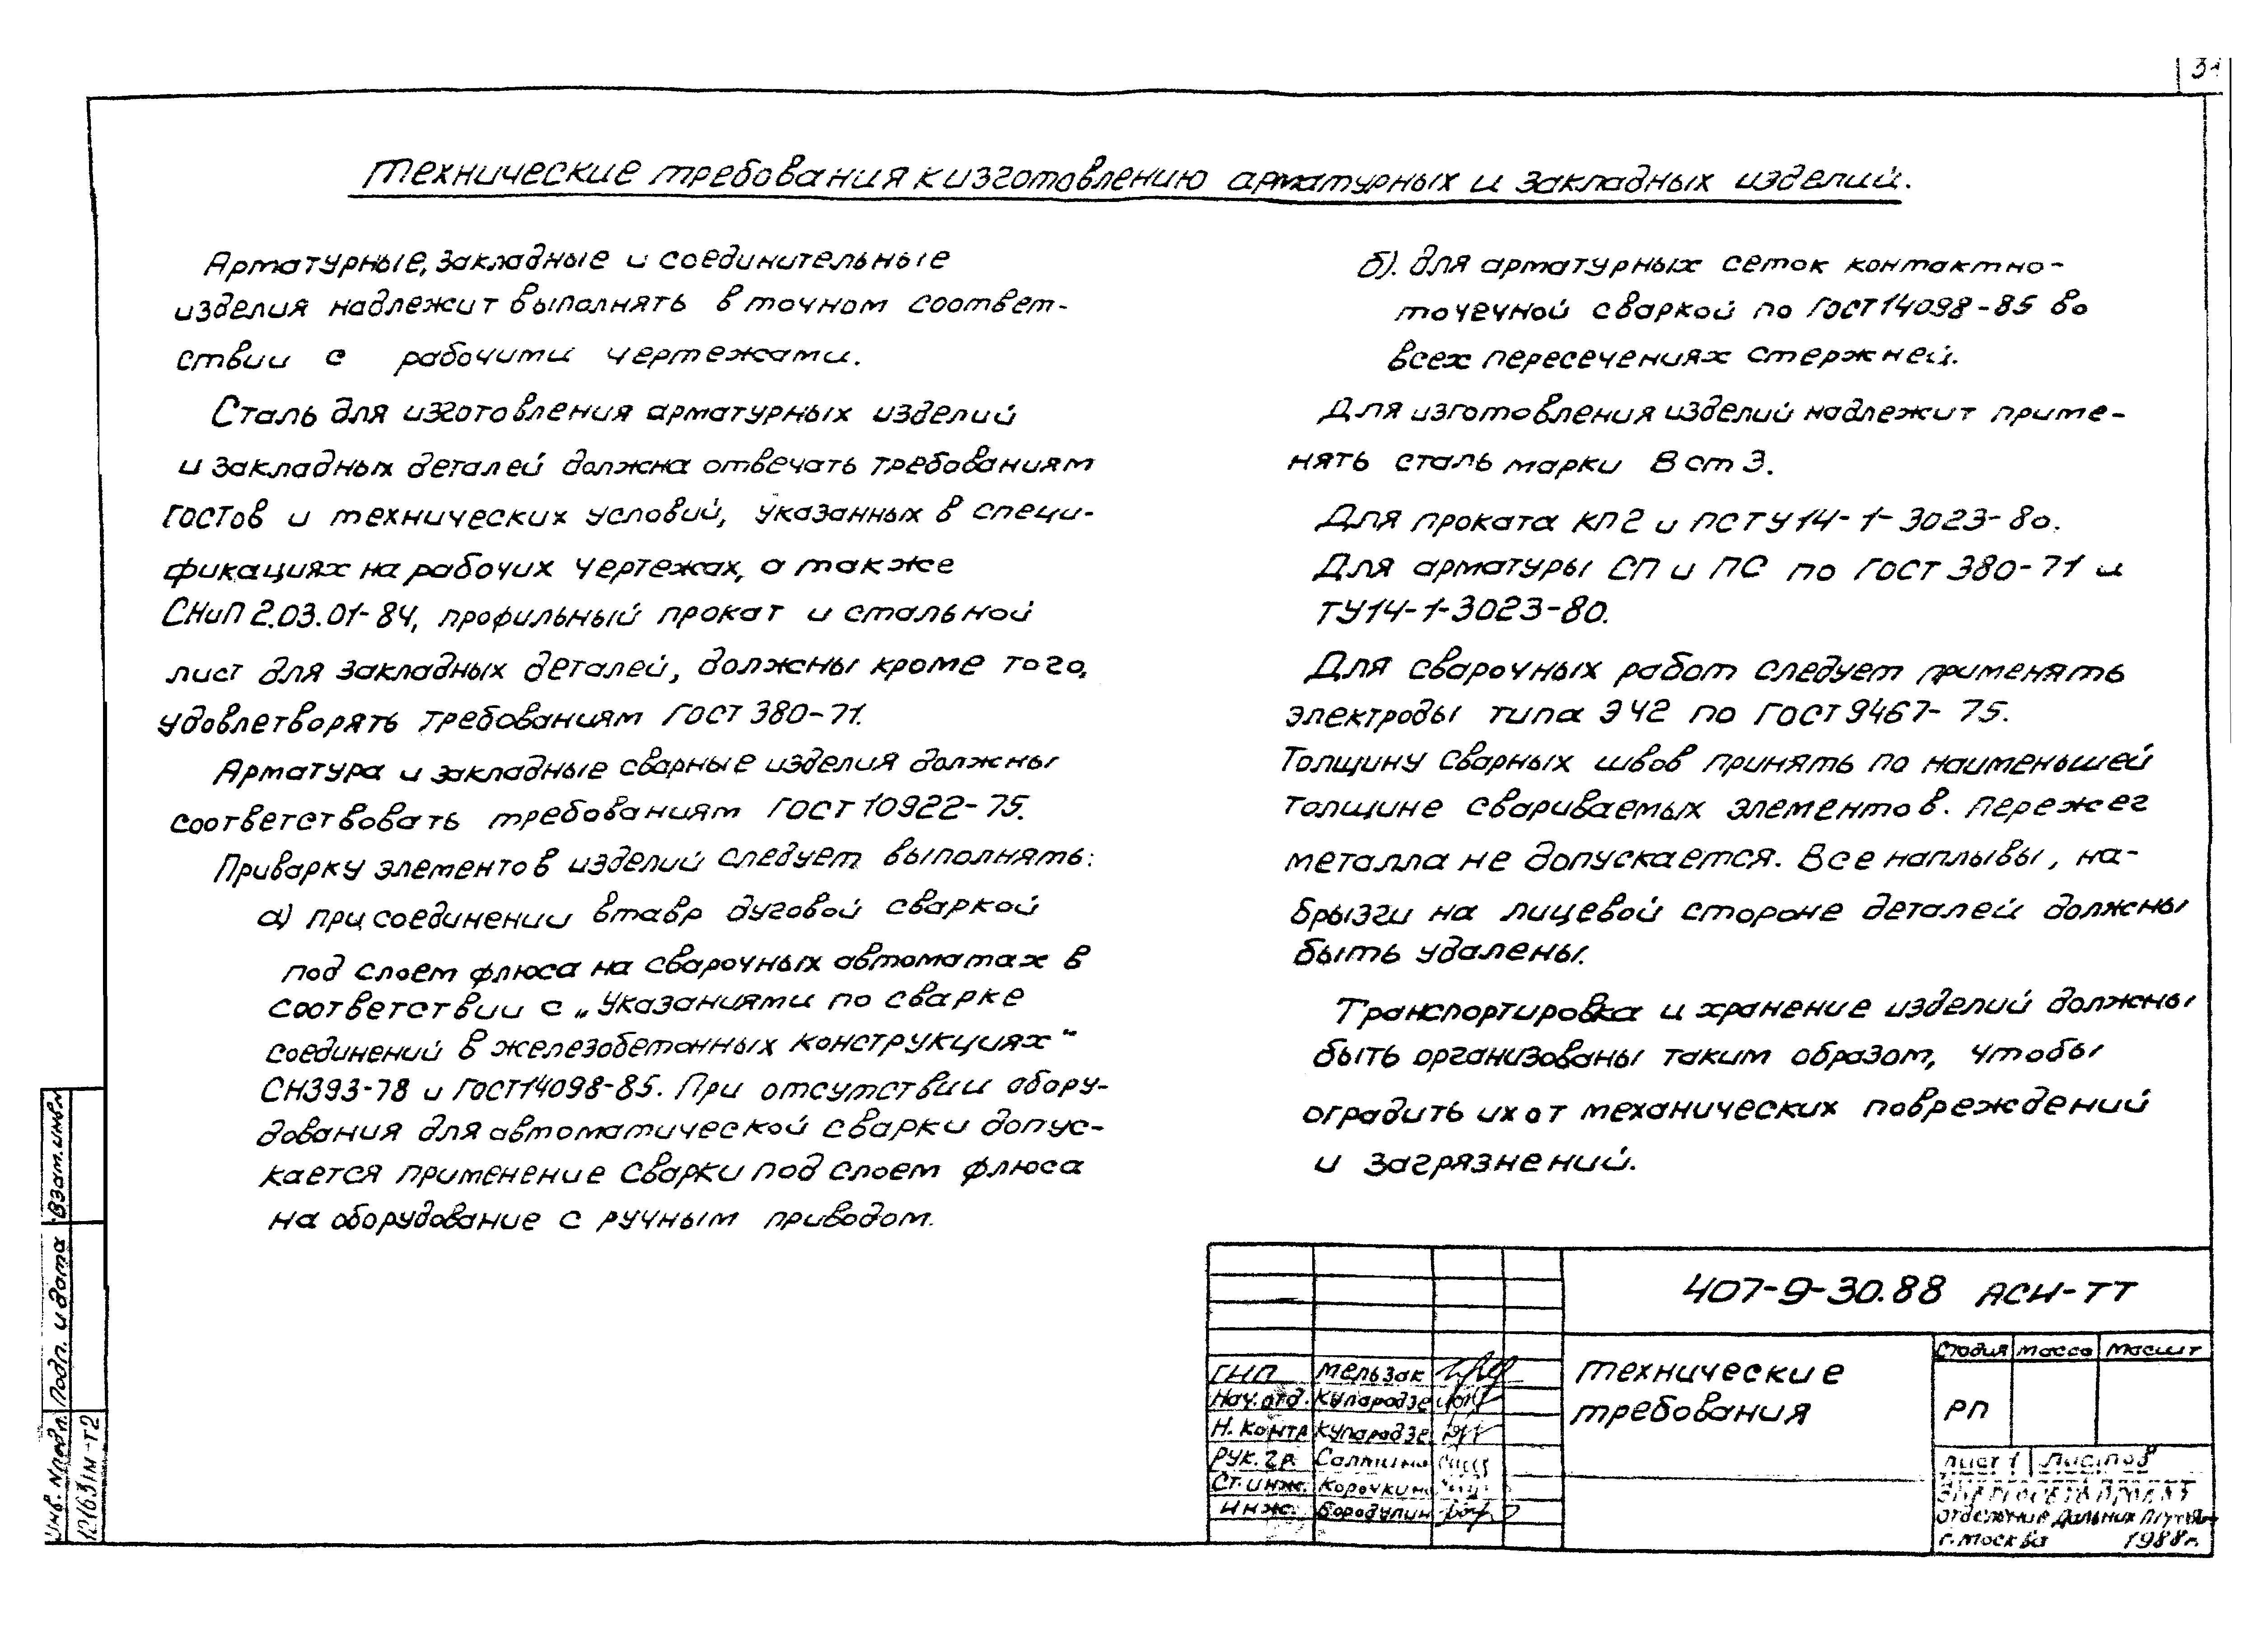 Технические требования к изготовлению арматурных и закладных изделий.
Арматурные, закладные и соединительные
изделия надлежит выполнять в точном соответ-
ствии с рабочими чертежами.
Сталь для изготовления арматурных изделий
и закладных деталей должна отвечать требованиям
ГОСТов и технических условий, указанных в специ-
фикациях на рабочих чертежах, а также
СНиП 2.03.01-84, профильный прокат и стальной
лист для закладных деталей, должны кроме того,
удовлетворять требованиям ГОСТ 380-71.
Арматура и закладные сварные изделия должны
соответствовать требованиям ГОСТ 10922-75.
Приварку элементов изделий следует выполнять:
а) при соединении втавр дуговой сваркой
под слоем флюса на сварочных автоматах в
соответствии с „Указаниями по сварке
соединений в железобетонных конструкциях"
СН393-78 и ГОСТ14098-85. При отсутствии обору-
дования для автоматической сварки допус-
кается применение сварки под слоем флюса
на оборудование с ручным приводом.
б). для арматурных сеток контактно-
точечной сваркой по ГОСТ14098-85 во
всех пересечениях стержней.
Для изготовления изделий надлежит приме-
нять сталь марки В ст 3.
Для проката КП2 и ПС ТУ14-1-3023-80.
Для арматуры СП и ПС по ГОСТ 380-71 и
ТУ14-1-3023-80.
Для сварочных работ следует применять
электроды типа Э42 по ГОСТ 9467-75.
Толщину сварных швов принять по наименьшей
толщине свариваемых элементов. Пережег
металла не допускается. Все наплывы, на-
брызги на лицевой стороне деталей должны
быть удалены.
Транспортировка и хранение изделий должны
быть организованы таким образом, чтобы
оградить их от механических повреждений
и загрязнений.
407-9-30.88 АСИ-ТТ
Технические
требования
Стадия Масса Масшт
РП
Лист 1 Листов
Отделение Дальних
г. Москва 1988г.
ГИП Мельзак
Нач. отд. Купарадзе
Н. контр Купарадзе
Рук. гр.
Ст. инж. Корочкина
Инж. Бородулин
Взам. инв. №
Подп. и дата
Инв. № подл.
12163тм-т2